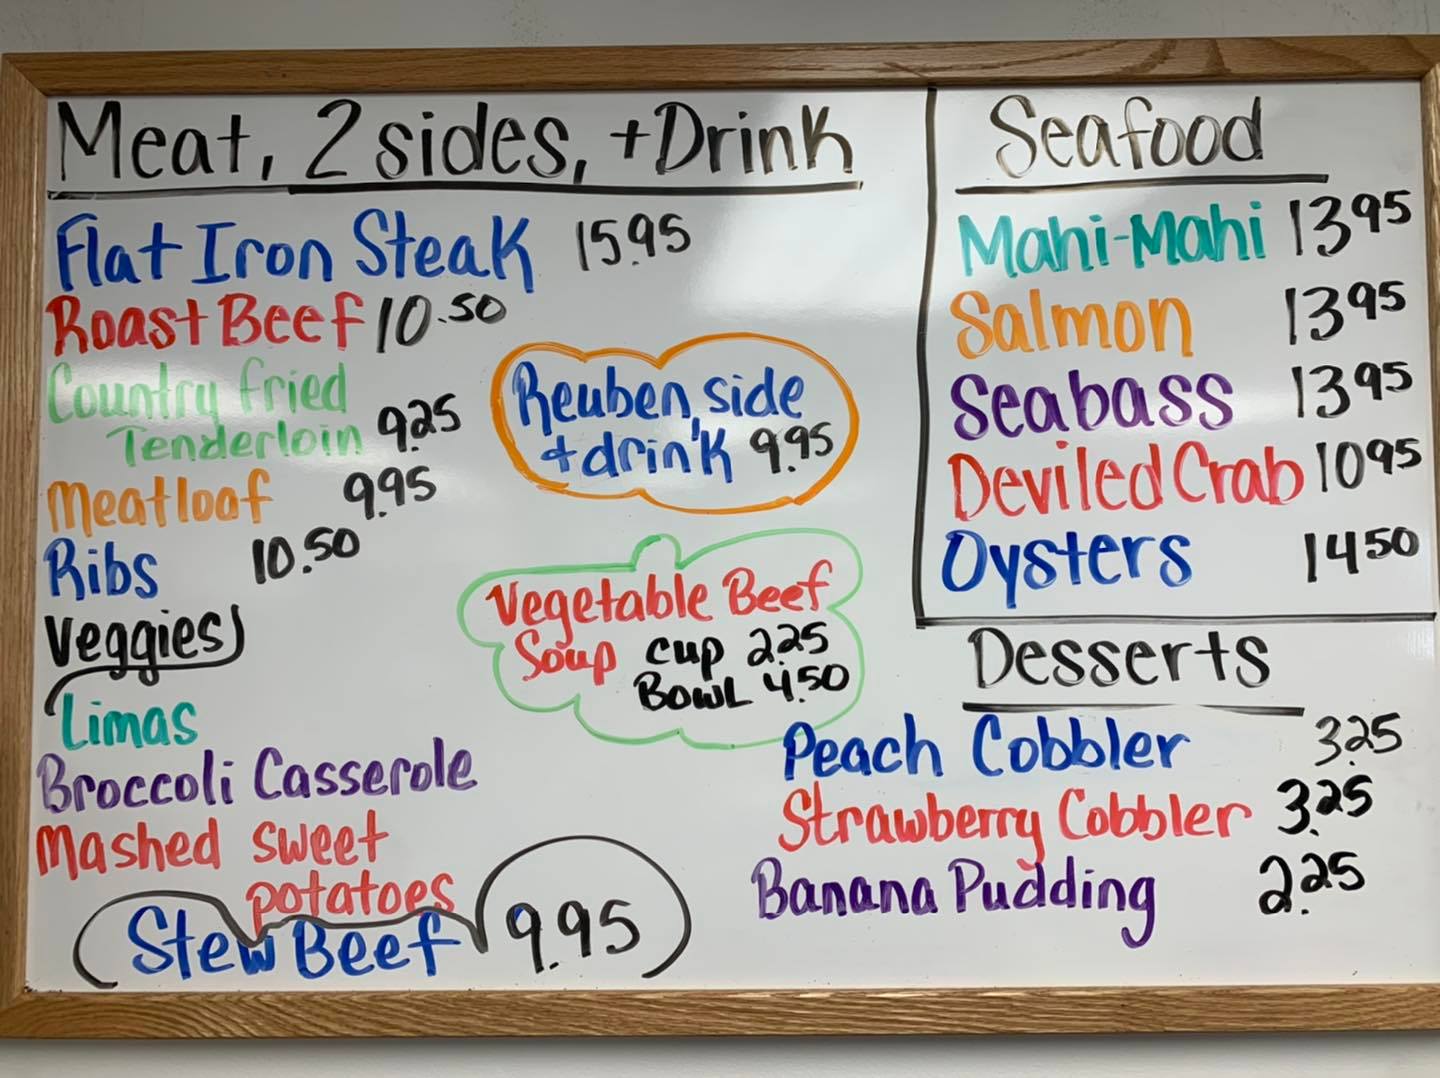 Meat, 2 sides, + Drink
Flat Iron Steak 15.95
Roast Beef 10.50
Country fried
Tenderloin 9.25
Meatloaf 9.95
Ribs 10.50
Veggies
Limas
Broccoli Casserole
Mashed sweet
potatoes
Stew Beef 9.95
Reuben, side
+ drink 9.95
Vegetable Beef
Soup cup 2.25
Bowl 4.50
Seafood
Mahi-Mahi 13 95
Salmon 13 95
Seabass 13 95
Deviled Crab 10 95
Oysters 14 50
Desserts
Peach Cobbler 3.25
Strawberry Cobbler 3.25
Banana Pudding 2.25